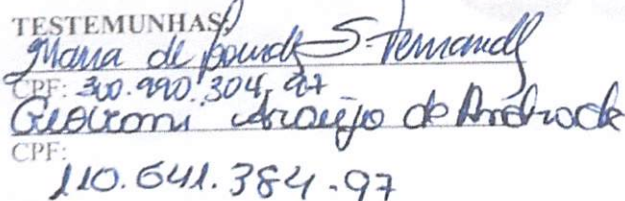 TESTEMUNHAS:
Maria de Lourdes S. Fernandes
CPF: 300.990.304,
Geovani Araújo de Andrade
CPF:
110.641.384-97